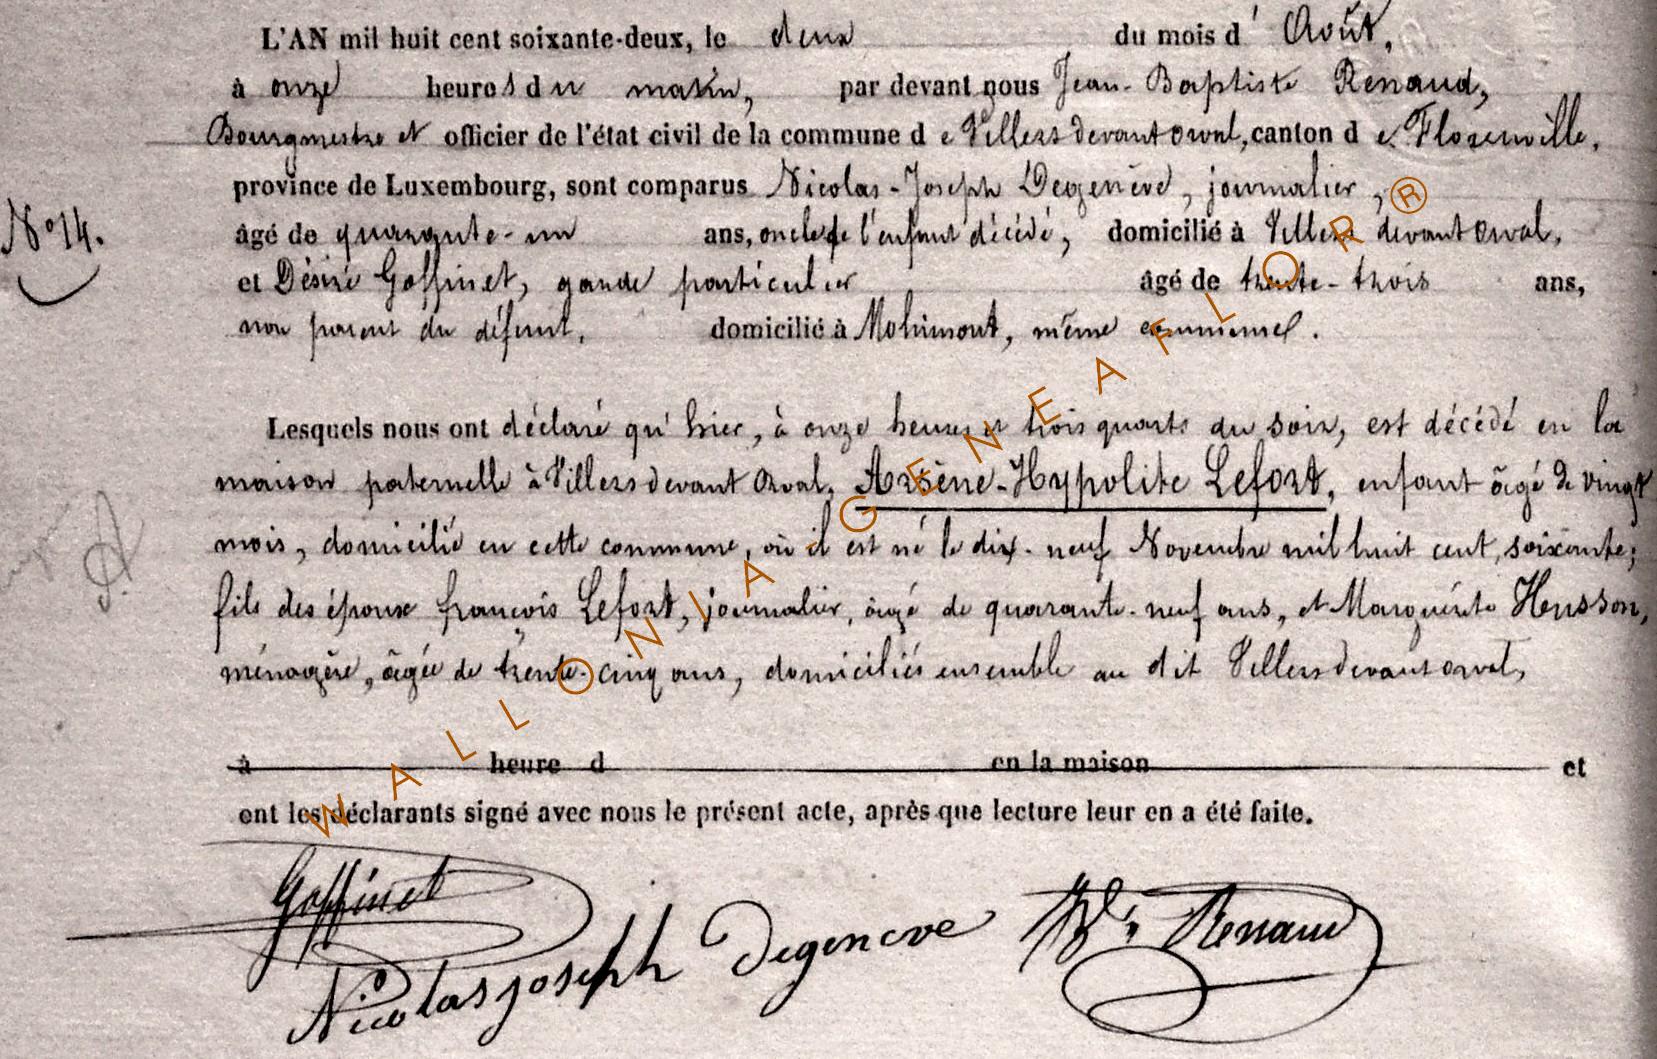 L'AN mil huit cent soixante-deux, le deux du mois d' Août,
à onze heures du matin, par devant nous Jean-Baptiste Renaud,
Bourgmestre et officier de l'état civil de la commune de Villers devant orval, canton de Florenville,
province de Luxembourg, sont comparus Nicolas-Joseph Degenève, journalier, ®
N° 14.
âgé de quarante-un ans, oncle de l'enfant décédé, domicilié à Villers devant Orval,
et Désiré Goffinet, garde particulier âgé de trente-trois ans,
non parent du défunt, domicilié à Mohimont, même commune.
Lesquels nous ont déclaré qu'hier, à onze heures et trois quarts du soir, est décédé en la
maison paternelle à Villers devant Orval, Arsène-Hypolite Lefort, enfant âgé de vingt
mois, domicilié en cette commune, où il est né le dix-neuf Novembre mil huit cent, soixante;
fils des époux françois Lefort, journalier, âgé de quarante-neuf ans, et Marguerite Husson,
ménagère, âgée de trente-cinq ans, domiciliés ensemble au dit Villers devant orval,
à heure d en la maison et
ont les déclarants signé avec nous le présent acte, après que lecture leur en a été faite.
Goffinet
Nicolas joseph Degeneve
Renaud
WALLONIA GENEAFLOR